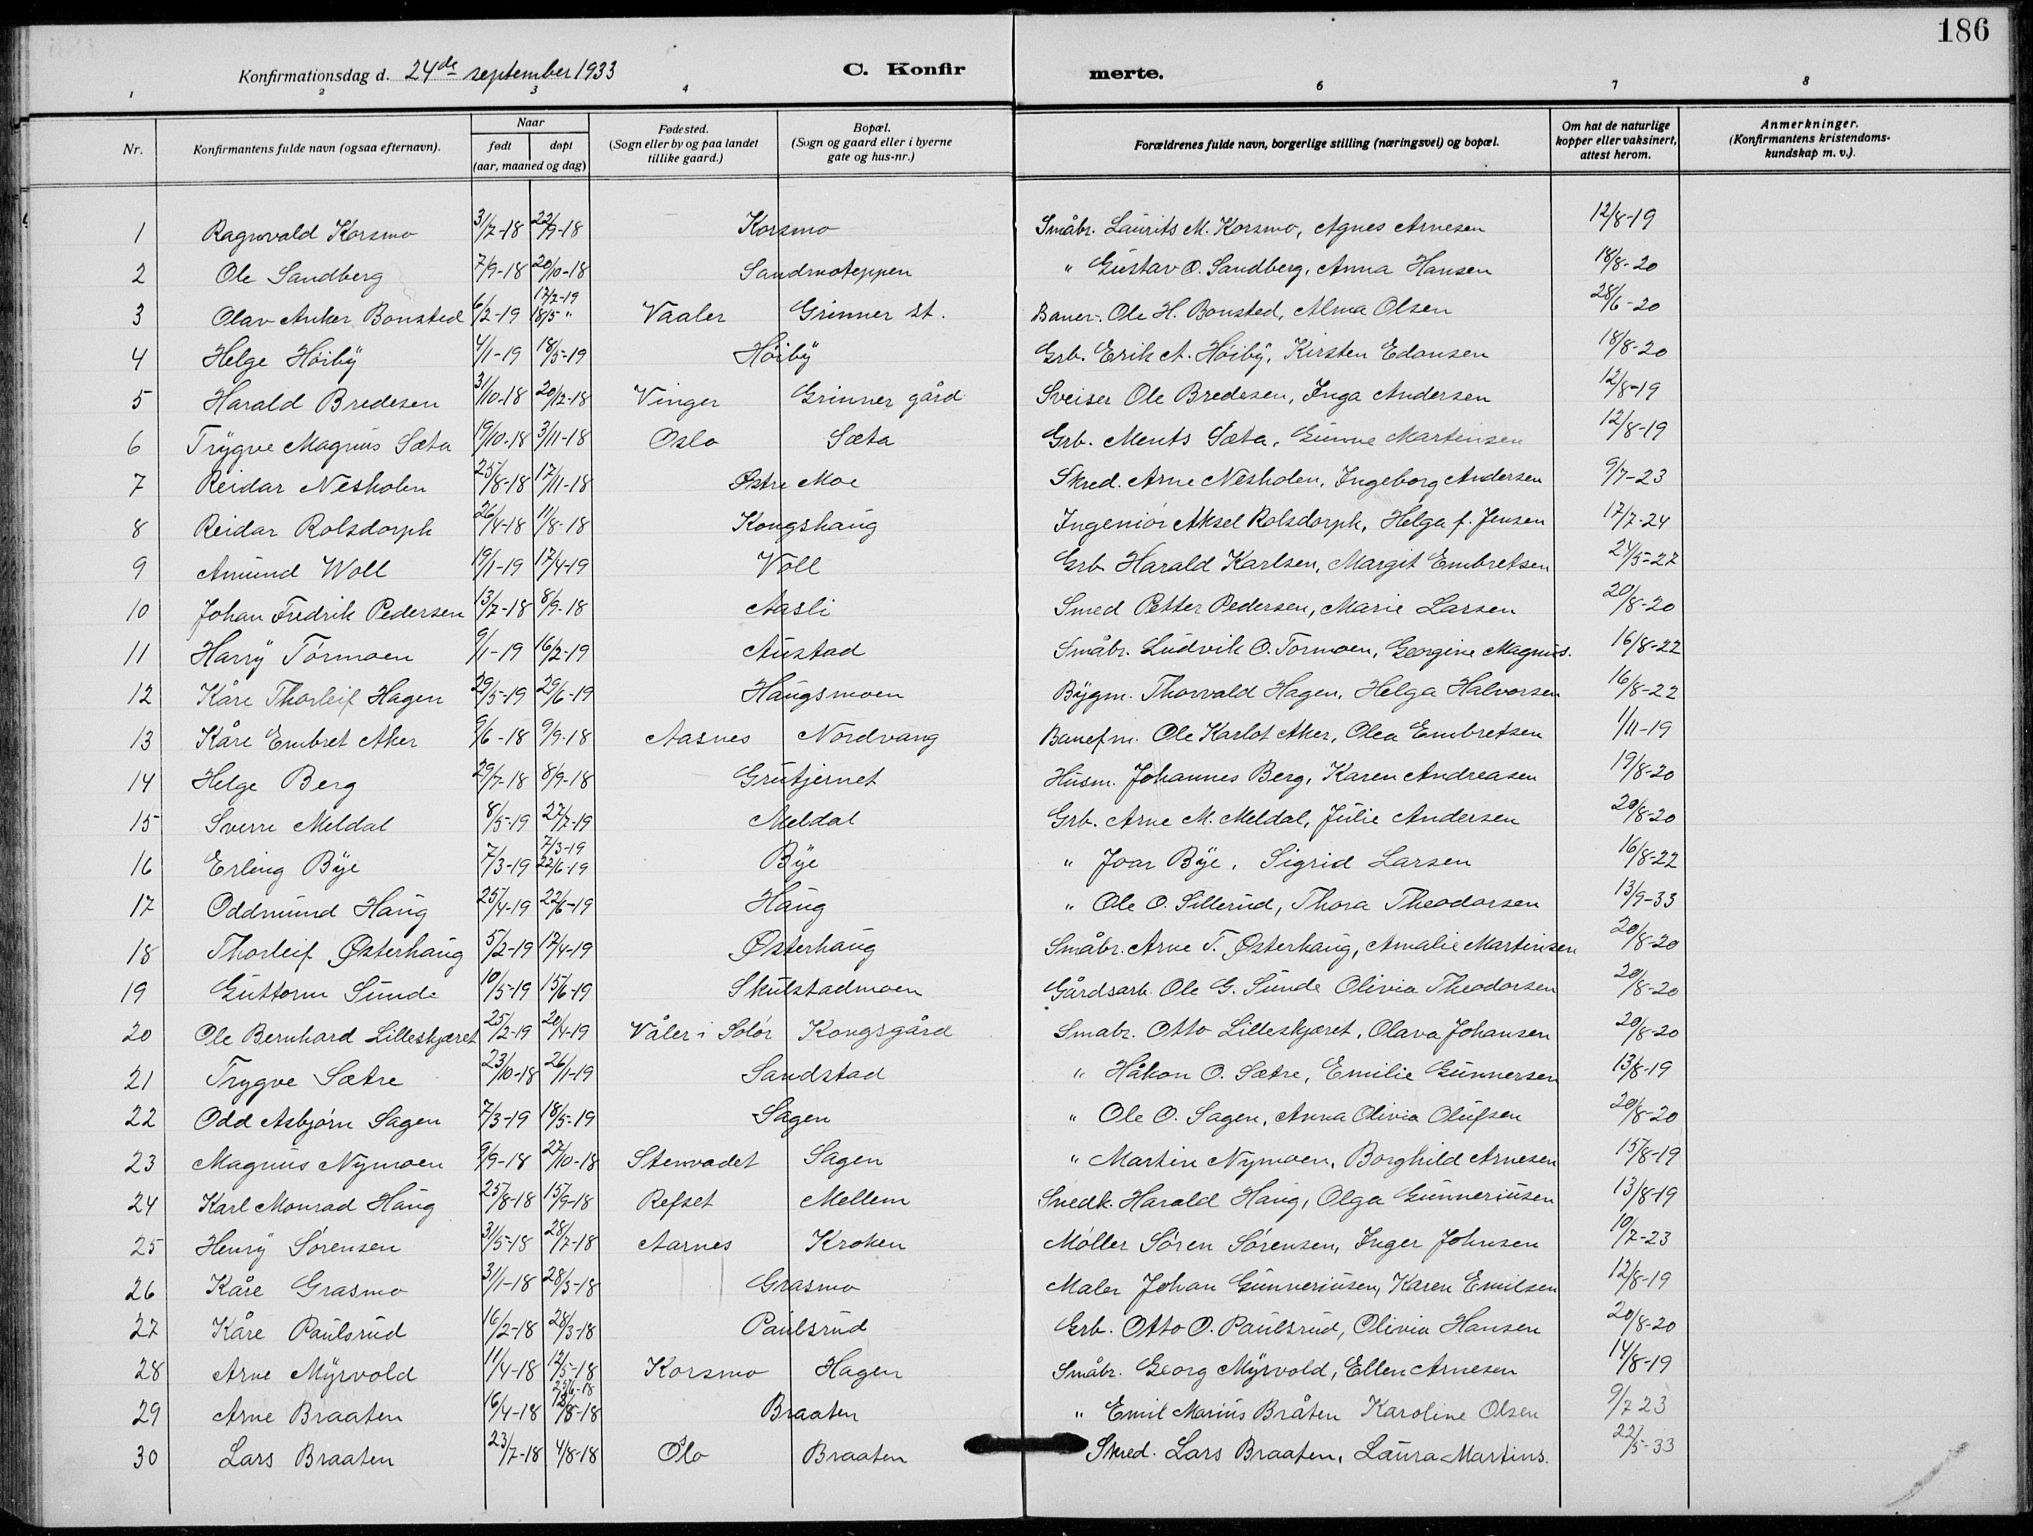 186
Konfirmationsdag d. 24de september 1933 C. Konfir merte.
1 2 3 4 6 7 8
Nr. Konfirmantens fulde navn (ogsaa efternavn). Naar født døpt (aar, maaned og dag) Fødested. (Sogn eller by og paa landet tillike gaard.) Bopæl. (Sogn og gaard eller i byerne gate og hus-nr.) Forældrenes fulde navn, borgerlige stilling (næringsvei) og bopæl. Om hat de naturlige kopper eller vaksinert, attest herom. Anmerkninger. (Konfirmantens kristendoms-kundskap m. v.).
1 Ragnvald Korsmo 3/7-18 22/9-18 Korsmo Småbr. Laurits M. Korsmo, Agnes Arnesen 12/8-19
2 Ole Sandberg 7/9-18 20/10-18 Sandmoteppen " Gustav O. Sandberg, Anna Hansen 18/8-20
3 Olav Anker Bonsted 6/2-19 17/2-19 18/5 " Vaaler Grinner st. Baner. Ole H. Bonsted, Alma Olsen 28/6-20
4 Helge Høiby 4/1-19 18/5-19 Høiby Grb. Erik A. Høiby, Kirsten Edansen 18/8-20
5 Harald Bredesen 31/10-18 20/12-18 Vinger Grinner gård Sveiser Ole Bredesen, Inga Andersen 12/8-19
6 Trygve Magnus Sæta 19/10-18 3/11-18 Oslo Sæta Grb. Ments Sæta, Gunne Martinsen 12/8-19
7 Reidar Nesholen 25/8-18 17/11-18 Østre Moe Skred. Arne Nesholen, Ingeborg Andersen 9/7-23
8 Reidar Rolsdorph 26/4-18 11/8-18 Kongshaug Ingeniør Aksel Rolsdorph, Helga f. Jensen 17/7-24
9 Amund Woll 19/1-19 17/4-19 Voll Grb. Harald Karlsen, Margit Embretsen 24/5-27
10 Johan Fredrik Pedersen 13/7-18 8/9-18 Aasli Smed Petter Pedersen, Marie Larsen 20/8-20
11 Harry Tormoen 9/1-19 16/2-19 Austad Småbr. Ludvik O. Tormoen, Georgine Magnus. 16/8-22
12 Kåre Thorleif Hagen 29/5-19 29/6-19 Haugsmoen Bygm. Thorvald Hagen, Helga Halvorsen 16/8-22
13 Kåre Embret Aker 9/6-18 9/9-18 Aasnes Nordvang Banefm. Ole Karlot Aker, Olea Embretsen 1/11-19
14 Helge Berg 29/7-18 8/9-18 Grutjernet Husm. Johannes Berg, Karen Andreasen 19/8-20
15 Sverre Meldal 8/5-19 27/7-19 Meldal Grb. Arne M. Meldal, Julie Andersen 20/8-20
16 Erling Bye 7/3-19 7/3-19 22/6-19 Bye " Joar Bye, Sigrid Larsen 16/8-22
17 Oddmund Haug 25/4-19 22/6-19 Haug " Ole O. Sillerud, Thora Theodorsen 13/9-33
18 Thorleif Østerhaug 5/2-19 17/4-19 Østerhaug Småbr. Arne T. Østerhaug, Amalie Martinsen 20/8-20
19 Guttorm Sunde 10/5-19 15/6-19 Skulstadmoen Gårdsarb. Ole G. Sunde Olivia Theodorsen 20/8-20
20 Ole Bernhard Lilleskjæret 25/2-19 20/4-19 Våler i Solør Kongsgård Småbr. Otto Lilleskjæret, Olava Johansen 20/8-20
21 Trygve Sætre 23/10-18 26/1-19 Sandstad " Håkon O. Sætre, Emilie Gunnersen 13/8-19
22 Odd Asbjørn Sagen 7/3-19 18/5-19 Sagen " Ole O. Sagen, Anna Olivia Olufsen 20/8-20
23 Magnus Nymoen 9/9-18 27/10-18 Stenvadet Sagen " Martin Nymoen, Borghild Arnesen 15/8-19
24 Karl Monrad Haug 25/8-18 15/9-18 Refset Mellem Snedk. Harald Haug, Olga Gunneriusen 13/8-19
25 Henry Sørensen 31/5-18 28/7-18 Aarnes Kroken Møller Søren Sørensen, Inger Johnsen 10/7-23
26 Kåre Grasmo 31/1-18 28/3-18 Grasmo Maler Johan Gunneriusen, Karen Emilsen 12/8-19
27 Kåre Paulsrud 16/2-18 28/3-18 Paulsrud Grb. Otto O. Paulsrud, Olivia Hansen 20/8-20
28 Arne Myrvold 11/4-18 12/5-18 Korsmo Hagen Småbr. Georg Myrvold, Ellen Arnesen 14/8-19
29 Arne Braaten 16/4-18 18/8-18 Braaten " Emil Marius Bråten Karoline Olsen 9/7 23
30 Lars Braaten 23/7-18 4/8-18 Oslo Braaten Skred. Lars Braaten, Laura Martins. 22/5-33